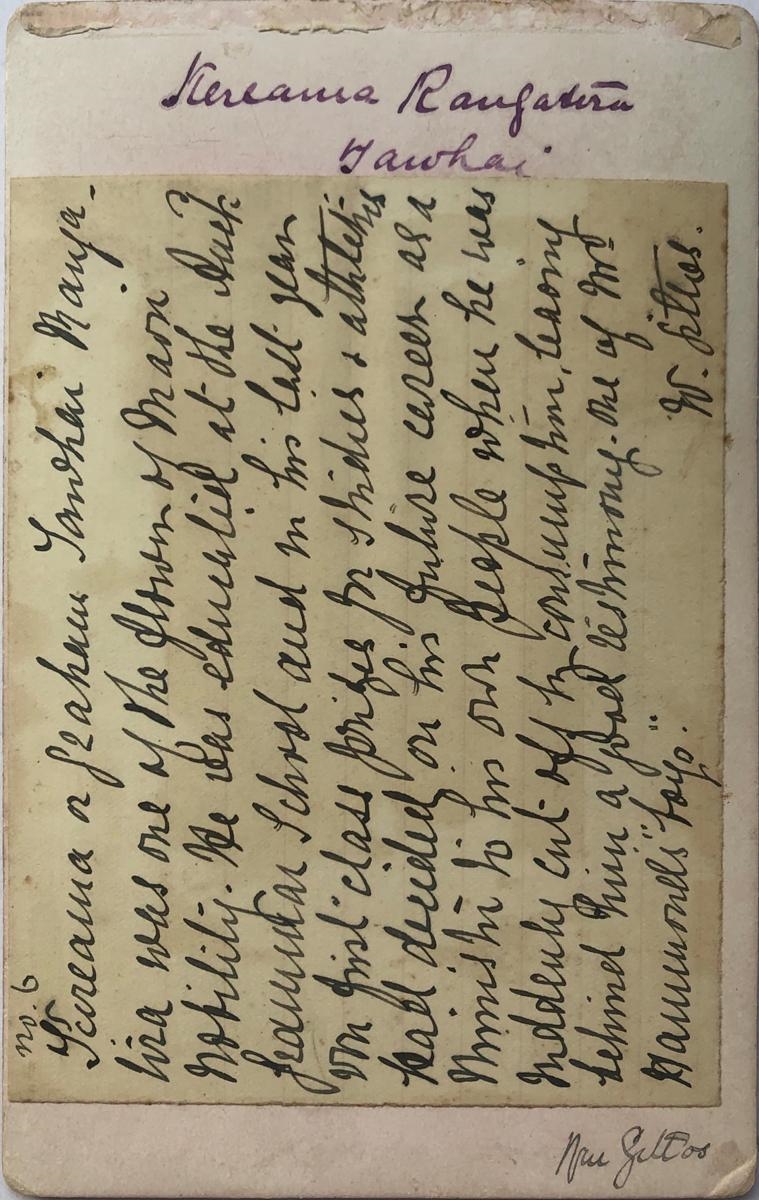 Kereama Rangatira
Tawhai
no. 6
Kereama or Graham Tawhai Ranga-
tira was one of the flower of Maori
Nobility. He was educated at the
Grammar School and in his last year
won first class prizes for studies & athletics
had decided on his future career as a
Minister to his own people when he was
suddenly cut off by consumption, leaving
behind him a good testimony. One of Mr
Hammonds "boys."
W. Gittos.
Wm Gittos